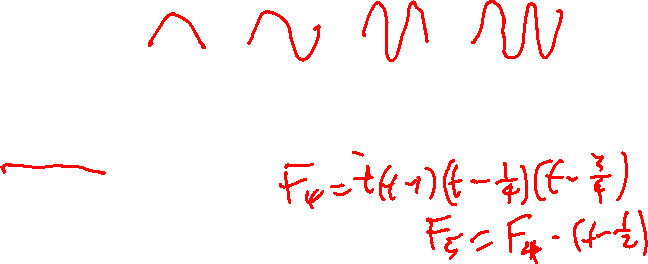 F₄ = t(t-1)(t-1/4)(t-3/4)
F₅ = F₄ · (t-1/2)